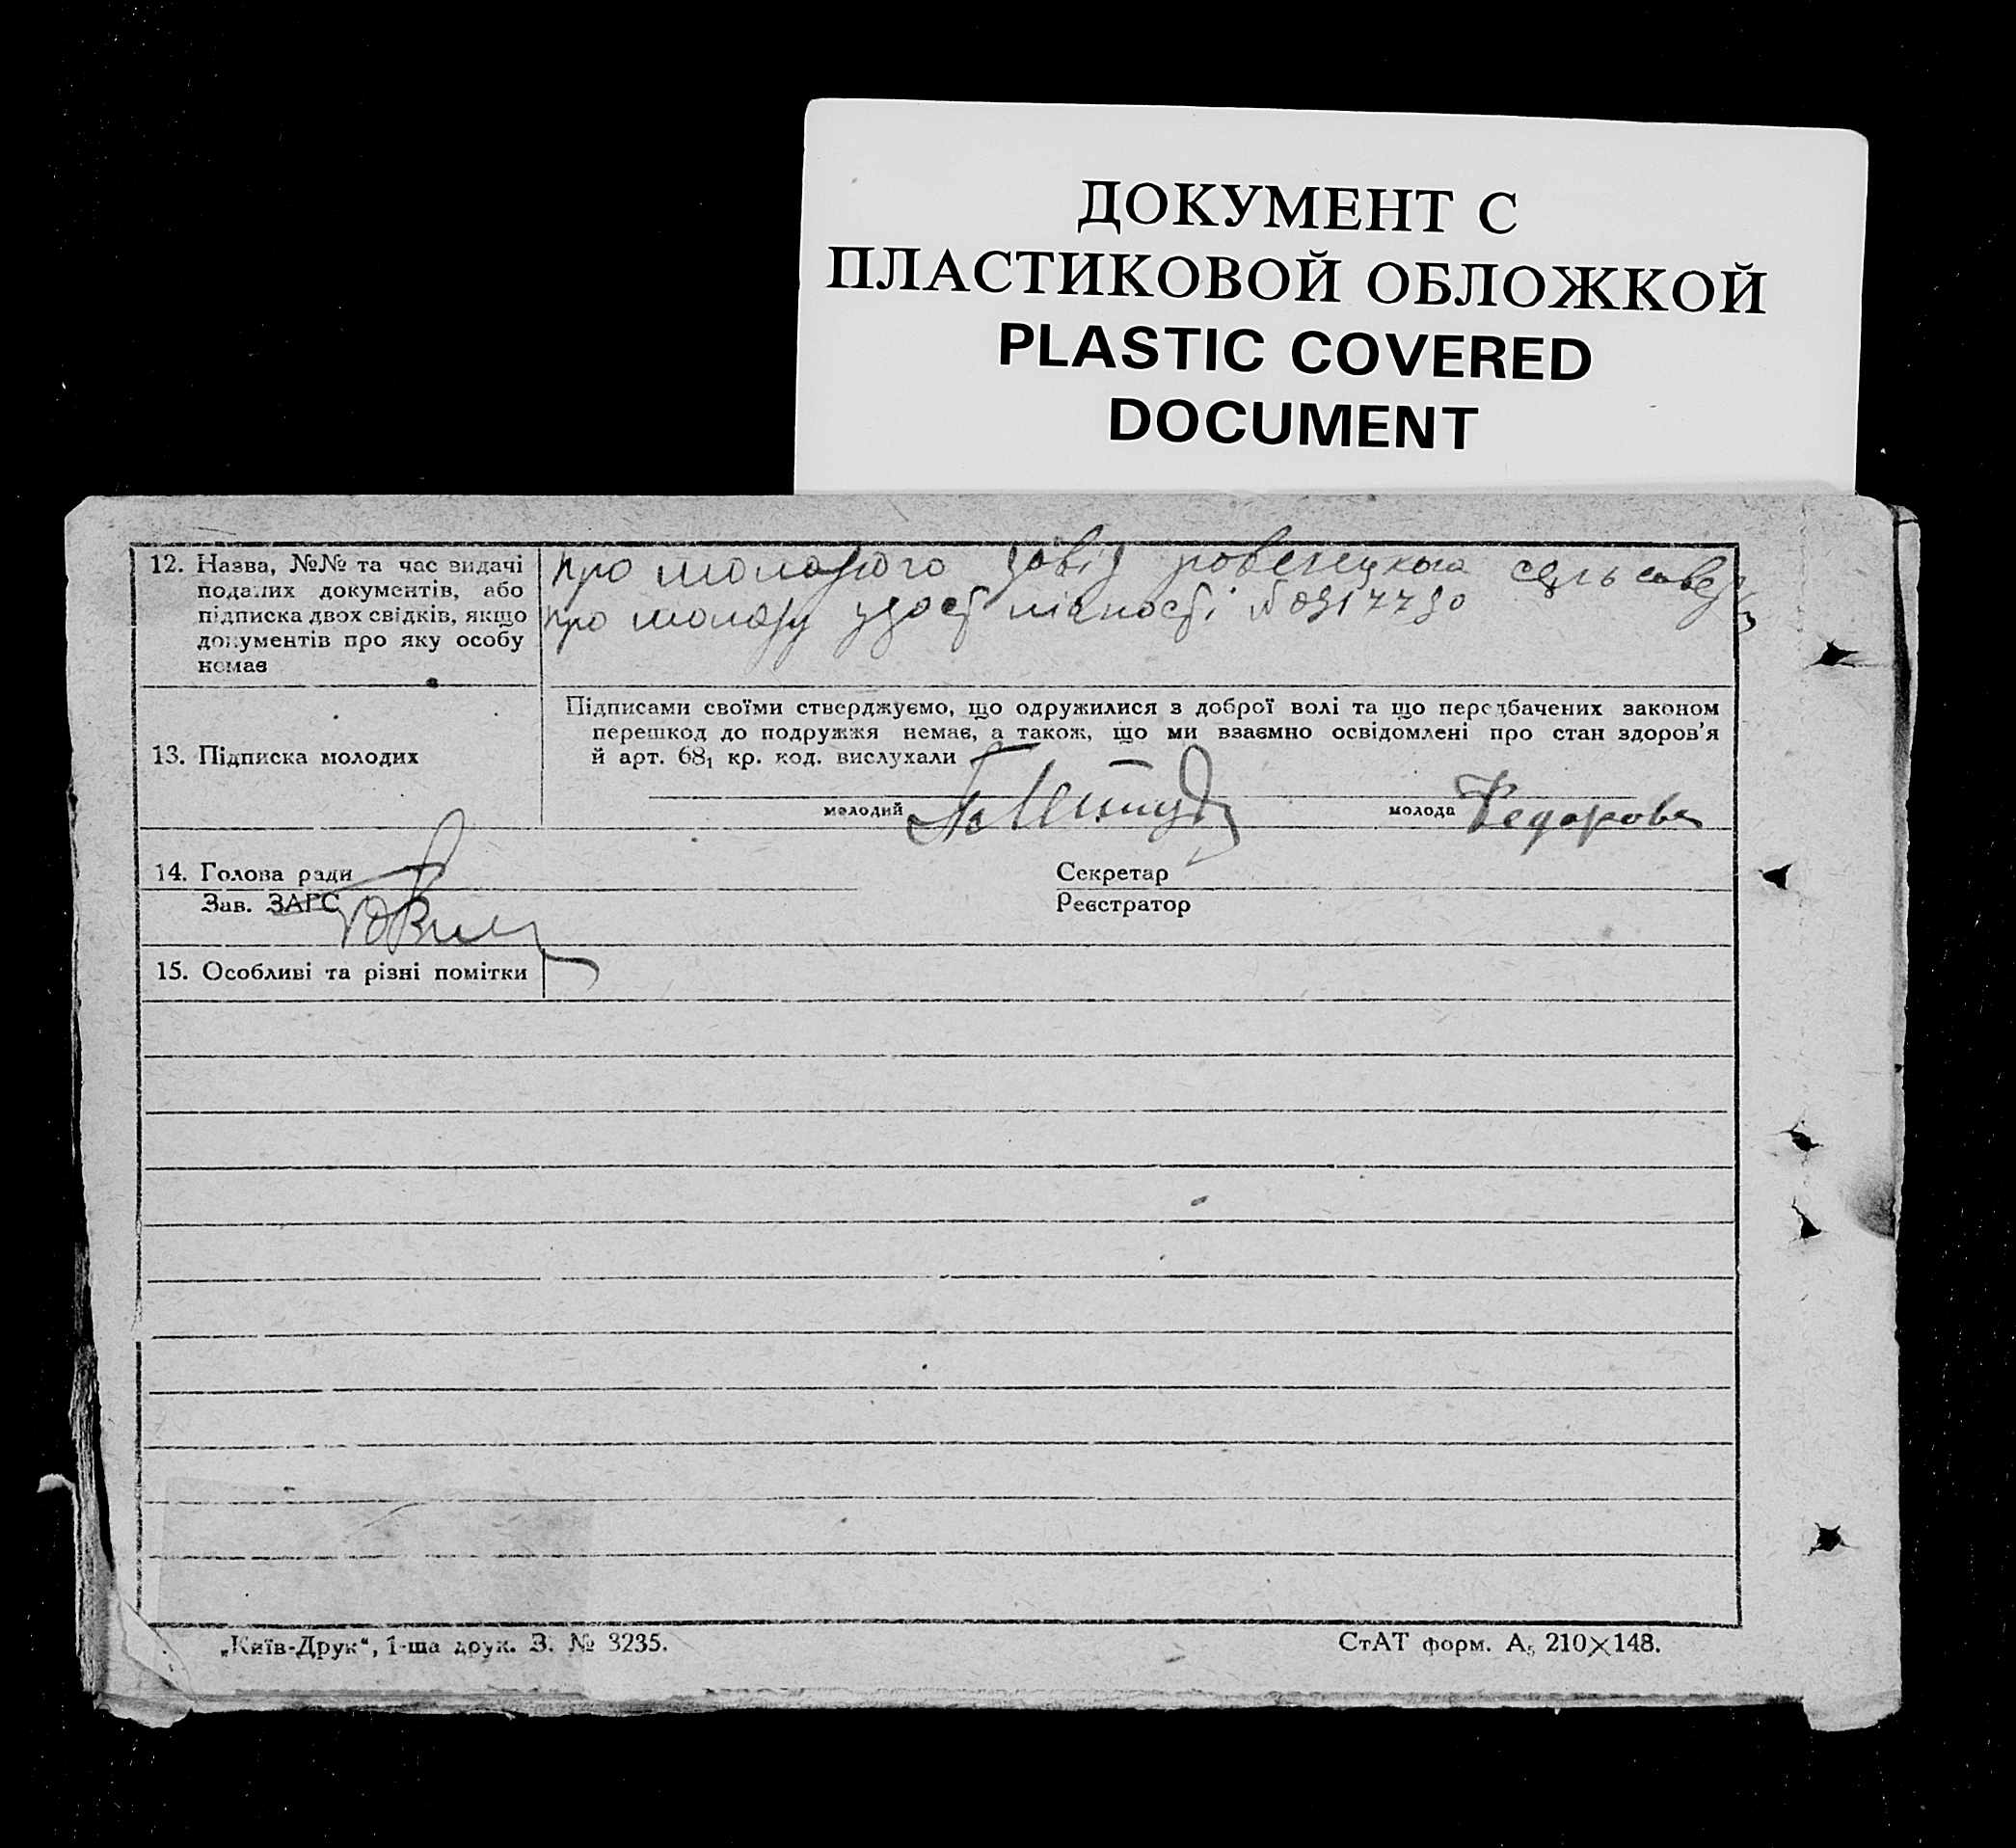 ДОКУМЕНТ С
ПЛАСТИКОВОЙ ОБЛОЖКОЙ
PLASTIC COVERED
DOCUMENT
12. Назва, №№ та час видачі
поданих документів, або
підписка двох свідків, якщо
документів про яку особу
немає
про молодого довід ровенецкого сельсовета
про молоду удост лічности № 0317730
13. Підписка молодих
Підписами своїми стверджуємо, що одружилися з доброї волі та що передбачених законом
перешкод до подружжя немає, а також, що ми взаємно освідомлені про стан здоров'я
й арт. 68₁ кр. код. вислухали
молодий
молода Федорова
14. Голова ради
Секретар
Зав. ЗАГС
Реєстратор
15. Особливі та різні помітки
„Київ-Друк“, 1-ша друк. З. № 3235.
СтАТ форм. А₅ 210×148.